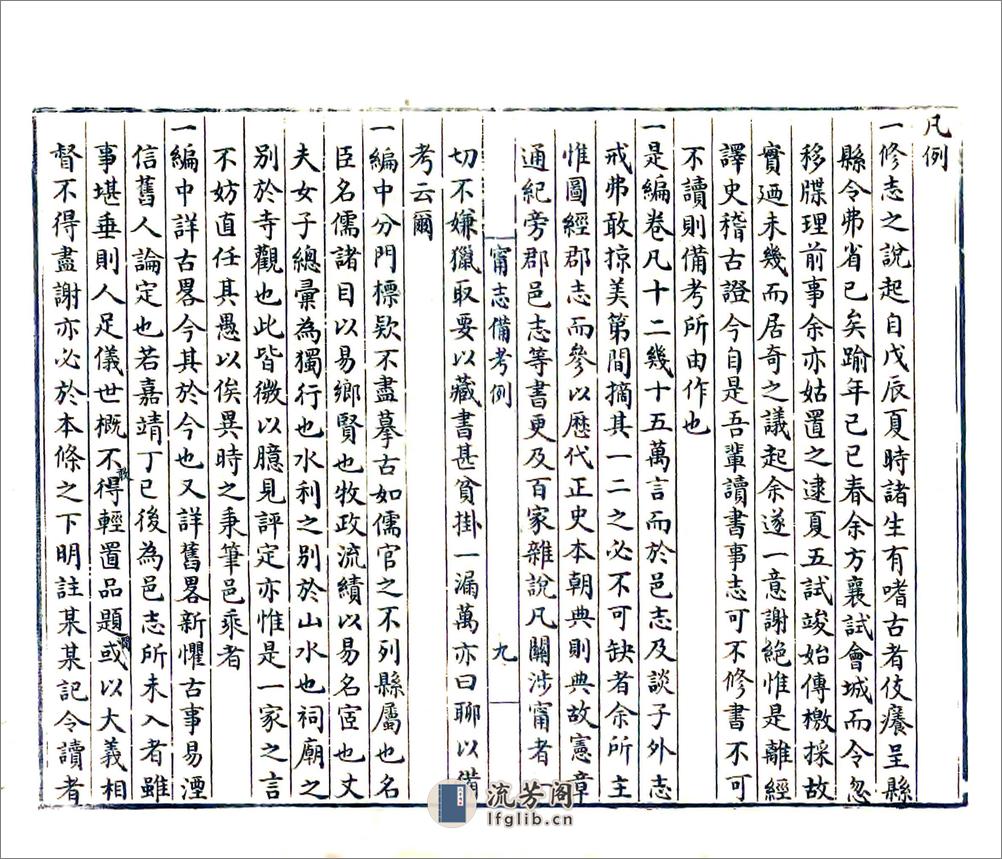 凡例
一修志之說起自戊辰夏時諸生有嗜古者伎癢呈縣
縣令弗省已矣踰年己巳春余方襄試會城而令忽
移牒理前事余亦姑置之逮夏五試竣始傳檄採故
實廼未幾而居奇之議起余遂一意謝絕惟是離經
譯史稽古證今自是吾輩讀書事志可不修書不可
不讀則備考所由作也
一是編卷凡十二幾十五萬言而於邑志及談子外志
戒弗敢掠美第間摘其一二之必不可缺者余所主
惟圖經郡志而參以歷代正史本朝典則典故憲章
通紀旁郡邑志等書更及百家雜說凡關涉甯者
甯志備考例
九
切不嫌獵取要以藏書甚貧掛一漏萬亦曰聊以備
考云爾
一編中分門標欵不盡摹古如儒官之不列縣屬也名
臣名儒諸目以易鄉賢也牧政流績以易名宦也丈
夫女子總彙為獨行也水利之別於山水也祠廟之
別於寺觀也此皆微以臆見評定亦惟是一家之言
不妨直任其愚以俟異時之秉筆邑乘者
一編中詳古畧今其於今也又詳舊畧新懼古事易湮
信舊人論定也若嘉靖丁巳後為邑志所未入者雖
事堪垂則人足儀世概不得輕置品題或以大義相
督不得盡謝亦必於本條之下明註某某記令讀者
流芳阁
lfglib.cn